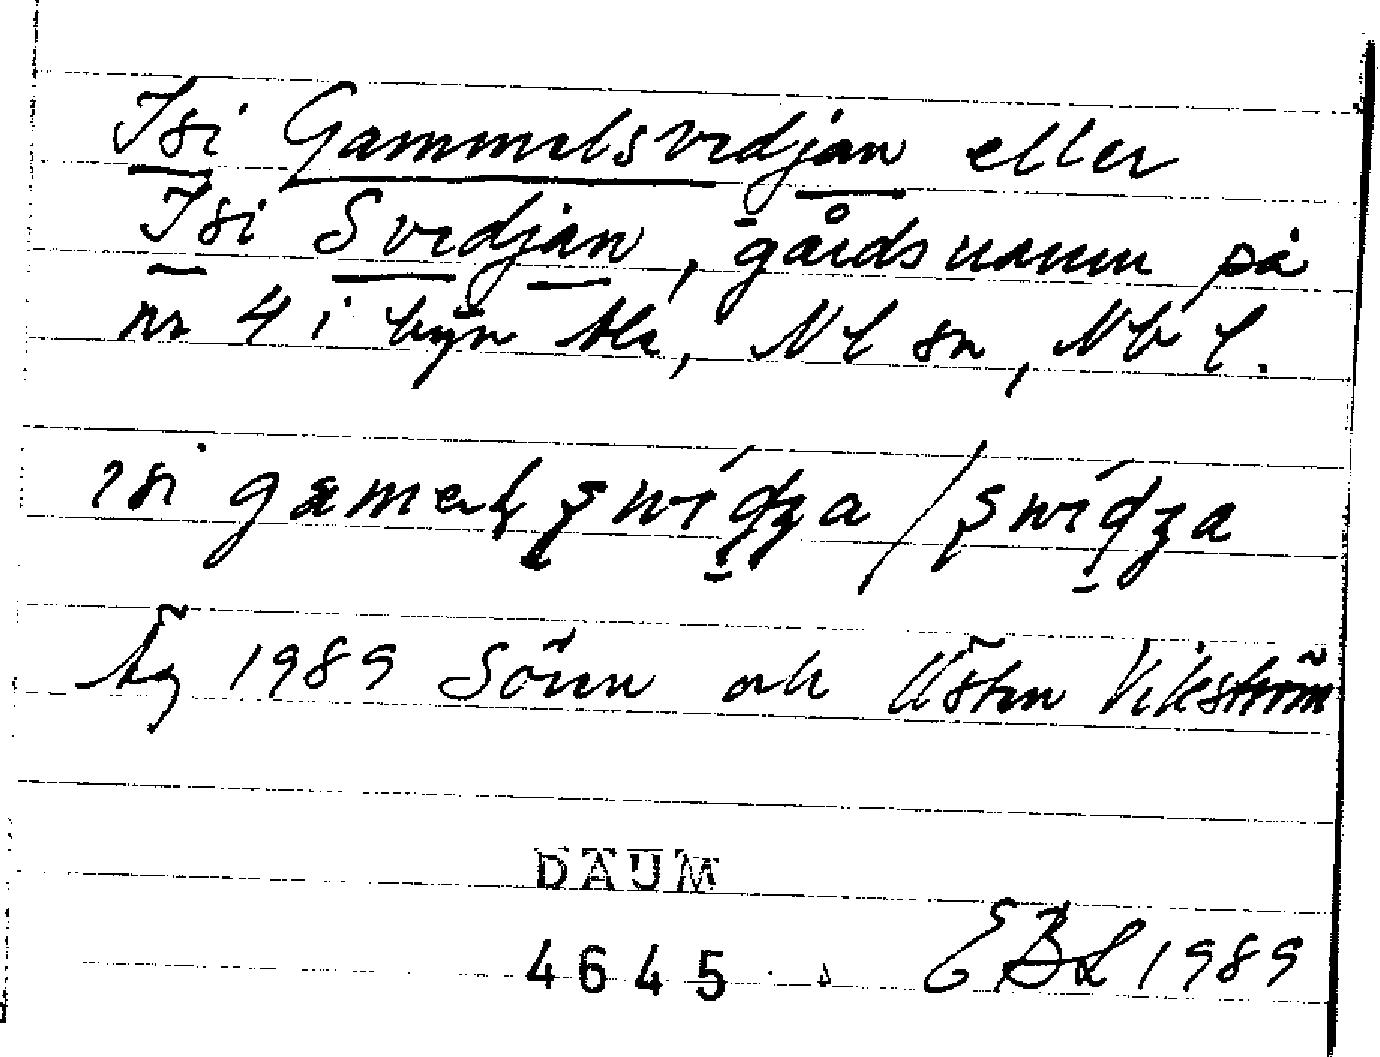 Isi Gammelsvedjan eller
Isi Svedjan, gårdsnamn på
nr 4 i byn Ale, Nl sn, Nb l.
isi gamal
Äg 1989 Sören och Östen Vikström
DAUM
4645 EBL 1989